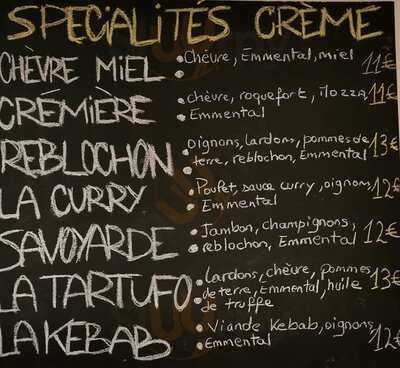 SPECIALITÉS CRÈME
CHÈVRE MIEL • Chèvre, Emmental, miel 11€
CRÉMIÈRE • chèvre, roquefort, mozza, 11€
• Emmental
REBLOCHON • oignons, lardons, pommes de 13€
terre, reblochon, Emmental
LA CURRY • Poulet, sauce curry, oignons 12€
• Emmental
SAVOYARDE • Jambon, champignons, 12€
• reblochon, Emmental
LA TARTUFO • Lardons, chèvre, pommes 13€
• de terre, Emmental, huile
• de truffe
LA KEBAB • Viande Kebab, oignons, 12€
• Emmental